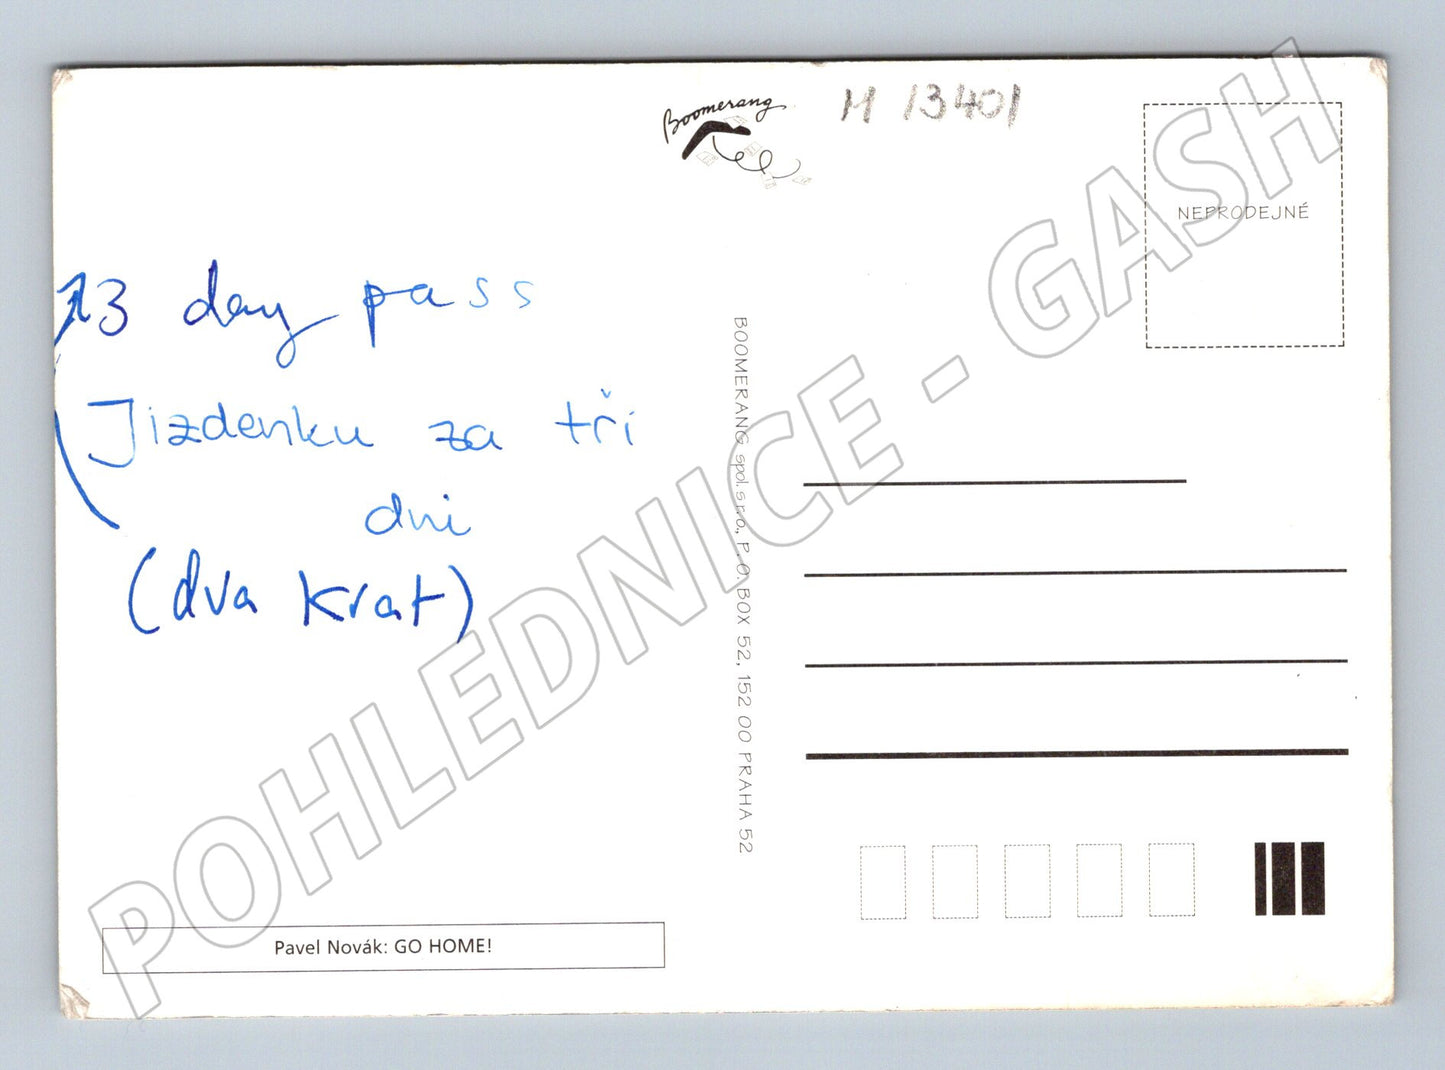 Boomerang
M 13401
NEPRODEJNÉ
3 day pass
Jizdenku za tři
dni
(dva krat)
BOOMERANG spol. s r.o., P. O. BOX 52, 152 00 PRAHA 52
Pavel Novák: GO HOME!
POHLEDNICE - GASH